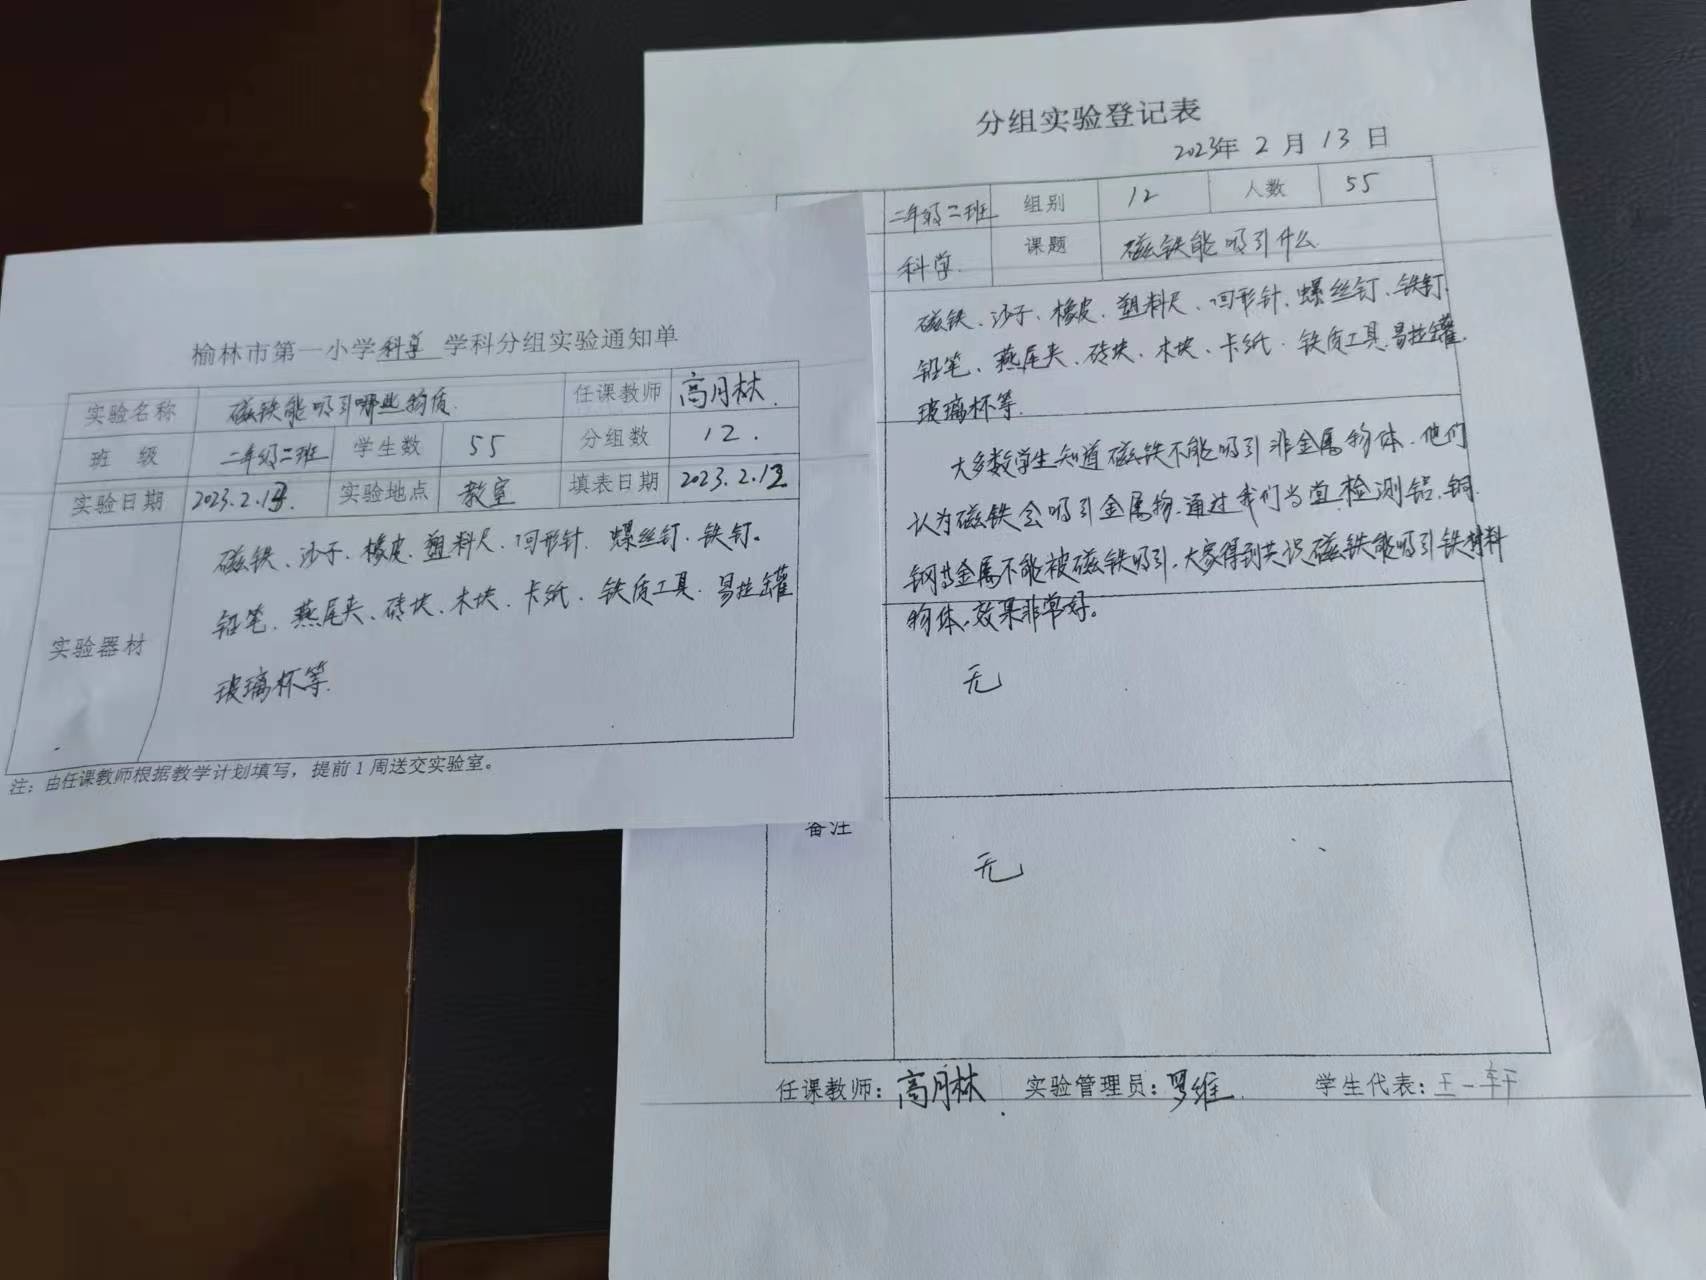 榆林市第一小学科学 学科分组实验通知单
实验名称 磁铁能吸引哪些物质. 任课教师 高月林.
班 级 二年级二班 学生数 55 分组数 12.
实验日期 2023.2.13. 实验地点 教室 填表日期 2023.2.13.
实验器材
磁铁、沙子、橡皮、塑料尺、回形针、螺丝钉、铁钉。
铅笔、燕尾夹、砖块、木块、卡纸、铁质工具、易拉罐
玻璃杯等.
注：由任课教师根据教学计划填写，提前 1 周送交实验室。
分组实验登记表
2023年 2 月 13 日
二年级二班 组别 12 人数 55
科学. 课题 磁铁能吸引什么.
磁铁、沙子、橡皮、塑料尺、回形针、螺丝钉、铁钉.
铅笔、燕尾夹、砖块、木块、卡纸、铁质工具.易拉罐.
玻璃杯等.
大多数学生知道磁铁不能吸引非金属物体.他们
认为磁铁会吸引金属物.通过我们当堂检测铝.铜.
钢等金属不能被磁铁吸引.大家得到共识磁铁能吸引铁材料
物体.效果非常好。
无
备注
无
任课教师：高月林. 实验管理员：罗维. 学生代表：王一轩